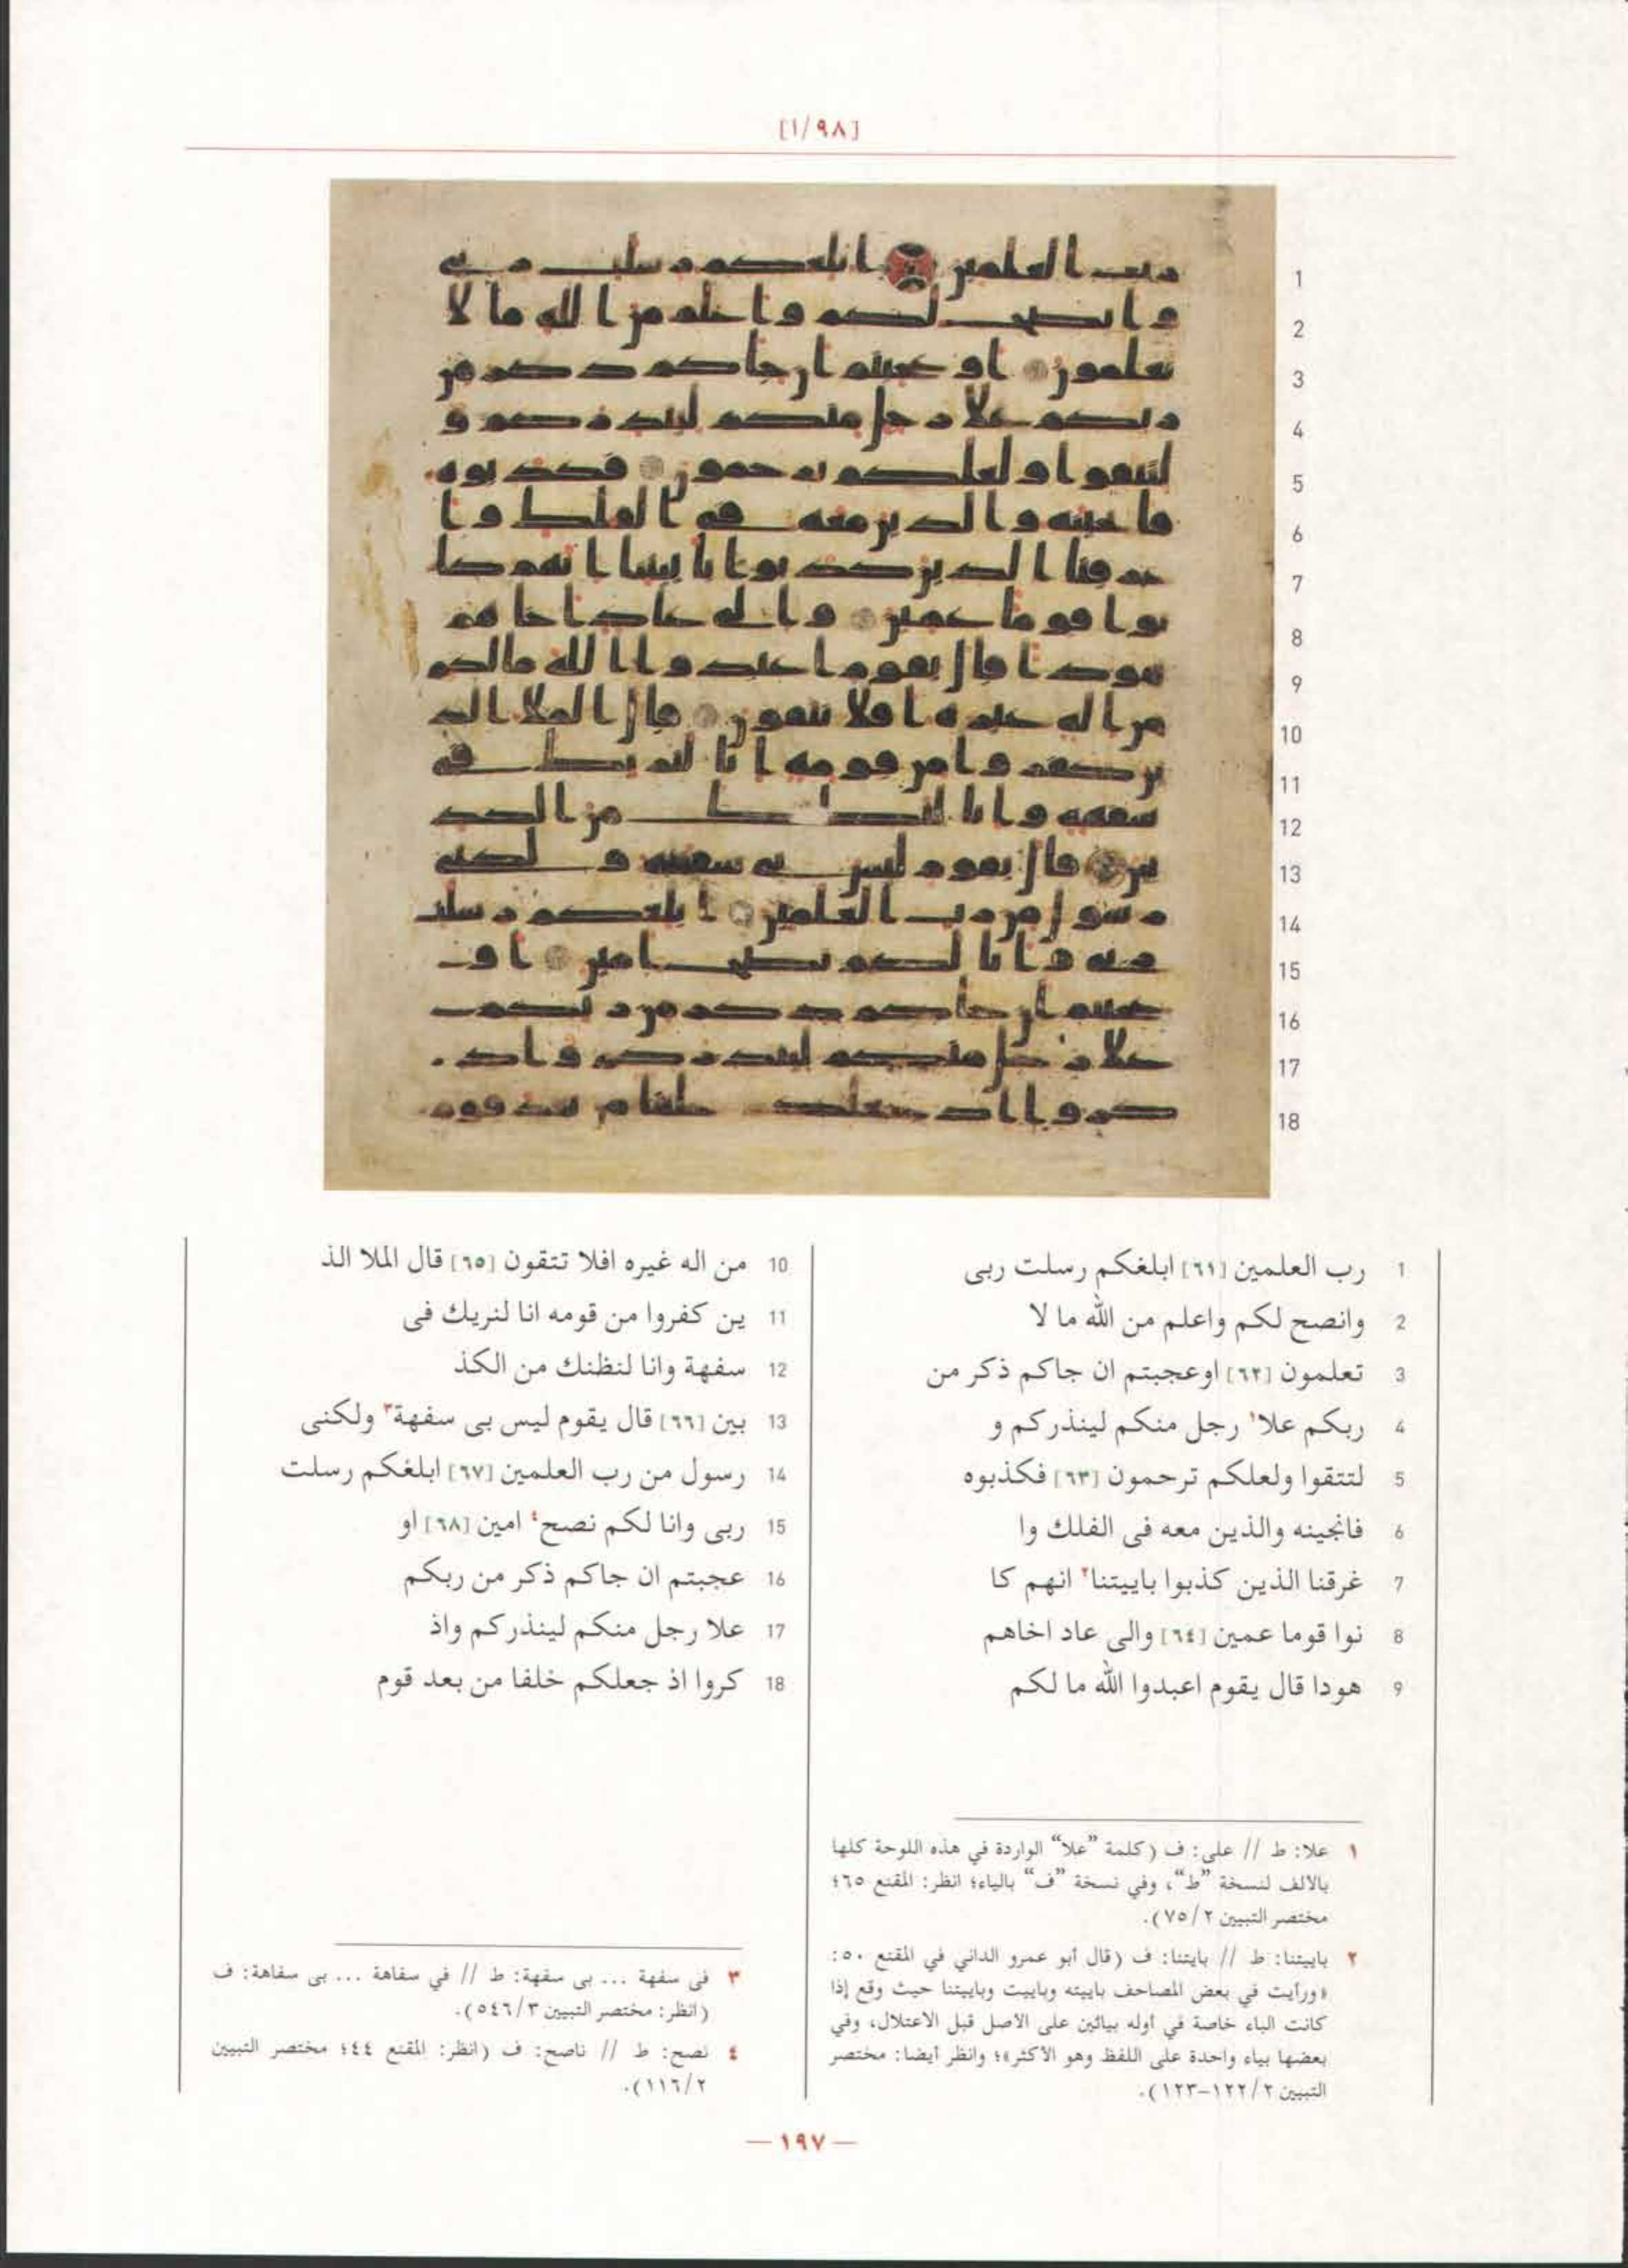 [١/٩٨]
1 رب العلمين [٦١] ابلغكم رسلت ربى
2 وانصح لكم واعلم من الله ما لا
3 تعلمون [٦٢] اوعجبتم ان جاكم ذكر من
4 ربكم علا١ رجل منكم لينذركم و
5 لتتقوا ولعلكم ترحمون [٦٣] فكذبوه
6 فانجينه والذين معه فى الفلك وا
7 غرقنا الذين كذبوا باييتنا٢ انهم كا
8 نوا قوما عمين [٦٤] والى عاد اخاهم
9 هودا قال يقوم اعبدوا الله ما لكم
10 من اله غيره افلا تتقون [٦٥] قال الملا الذ
11 ين كفروا من قومه انا لنريك فى
12 سفهة وانا لنظنك من الكذ
13 بين [٦٦] قال يقوم ليس بى سفهة٣ ولكنى
14 رسول من رب العلمين [٦٧] ابلغكم رسلت
15 ربى وانا لكم نصح٤ امين [٦٨] او
16 عجبتم ان جاكم ذكر من ربكم
17 علا رجل منكم لينذركم واذ
18 كروا اذ جعلكم خلفا من بعد قوم
١ علا: ط // على: ف (كلمة ”علا“ الواردة في هذه اللوحة كلها
بالالف لنسخة ”ط“، وفي نسخة ”ف“ بالياء؛ انظر: المقنع ٦٥؛
مختصر التبيين ٧٥/٢).
٢ باييتنا: ط // بايتنا: ف (قال أبو عمرو الداني في المقنع ٥٠:
«ورأيت في بعض المصاحف باييته وباييت وباييتنا حيث وقع إذا
كانت الباء خاصة في أوله بيائين على الاصل قبل الاعتلال، وفي
بعضها بياء واحدة على اللفظ وهو الأكثر»؛ وانظر أيضا: مختصر
التبيين ١٢٢/٢-١٢٣).
٣ فى سفهة ... بى سفهة: ط // في سفاهة ... بى سفاهة: ف
(انظر: مختصر التبيين ٥٤٦/٣).
٤ نصح: ط // ناصح: ف (انظر: المقنع ٤٤؛ مختصر التبيين
١١٦/٢).
— ١٩٧ —